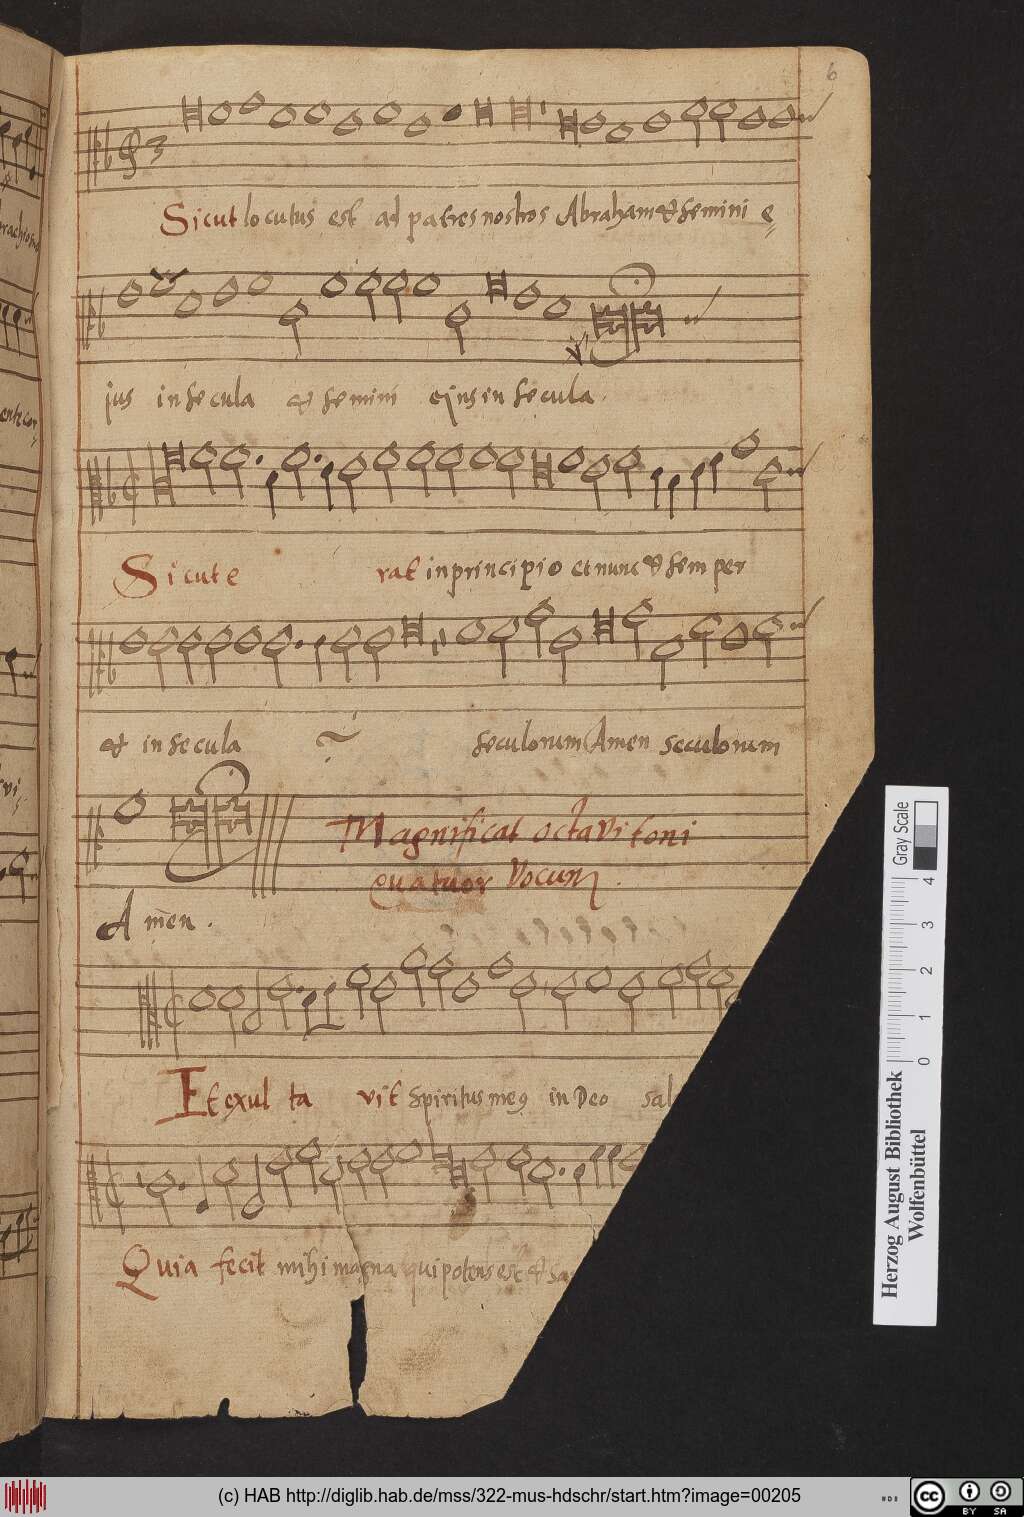 6
3
Sicut locutus est ad patres nostros Abraham & semini e
ius in secula & semini eius in secula.
Sicut e rat in principio et nunc & semper
& in secula seculorum Amen seculorum
Magnificat octavi toni
quatuor vocum.
Amen.
Et exul ta vit spiritus meus in Deo sal
Quia fecit mihi magna qui potens est & sa
Gray Scale
4
3
2
1
0
Herzog August Bibliothek
Wolfenbüttel
(c) HAB http://diglib.hab.de/mss/322-mus-hdschr/start.htm?image=00205
cc
BY SA